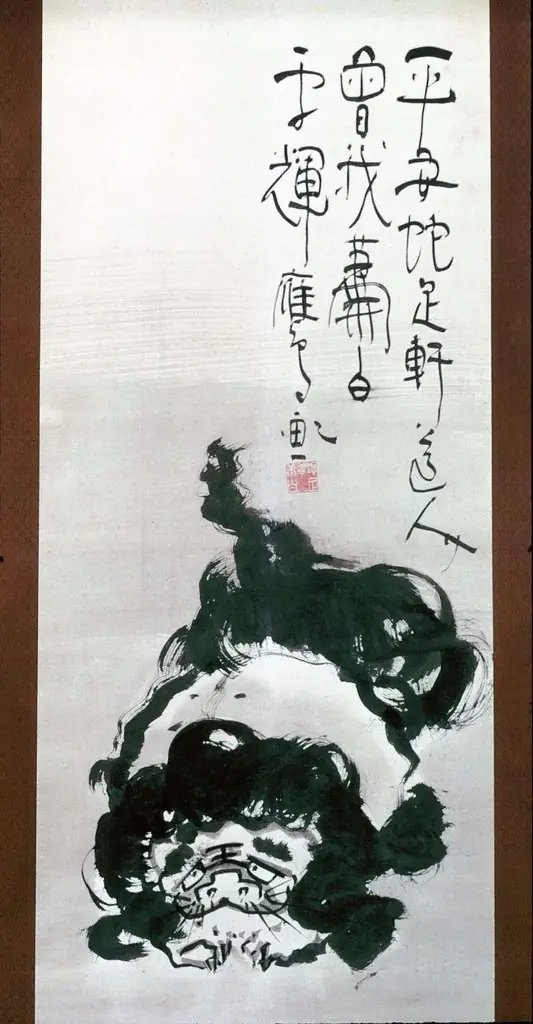 平安蛇足軒道人
曾我蕭白
輝應画